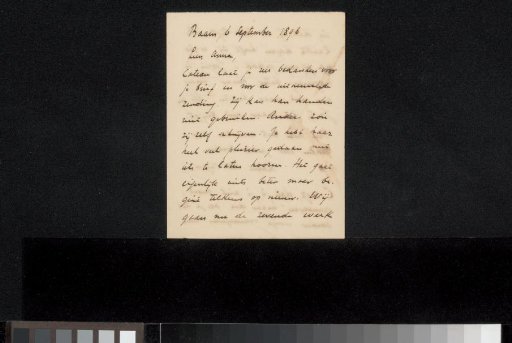 Baarn 6 September 1896
Anna,
Cateau laat je zeer bedanken voor
je brief en voor de
zending. Zij kan haar handen
niet gebruiken. Anders zou
zij zelf schrijven. Je hebt haar
heel veel plezier gedaan met
iets te laten hooren. Het gaat
eigenlijk niets beter maar be-
gint telkens op nieuw. Wij
gaan nu de zevende week